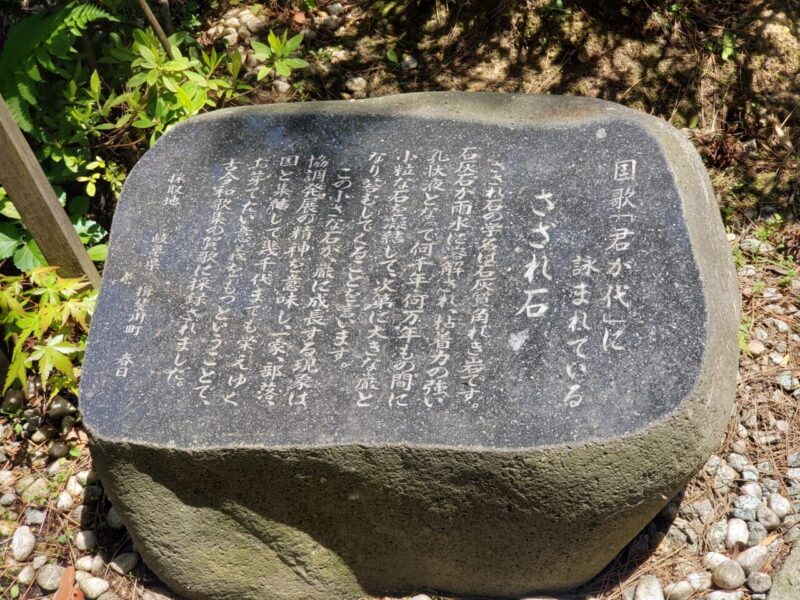 国歌「君が代」に
詠まれている
さざれ石
さざれ石の学名は石灰質角れき岩です。
石灰石が雨水に溶解され、粘着力の強い
乳状液となって何千年何万年もの間に
小粒な石を凝結して、次第に大きな巌と
なり苔むしてくることを言います。
この小さな石が、巌に成長する現象は
協調発展の精神を意味し、一家、部落、
国と集結して幾千代までも栄えゆく
お芽でたい意義をもつということで、
古今和歌集のお歌に採録されました。
採取地 岐阜県
揖斐川町 春日